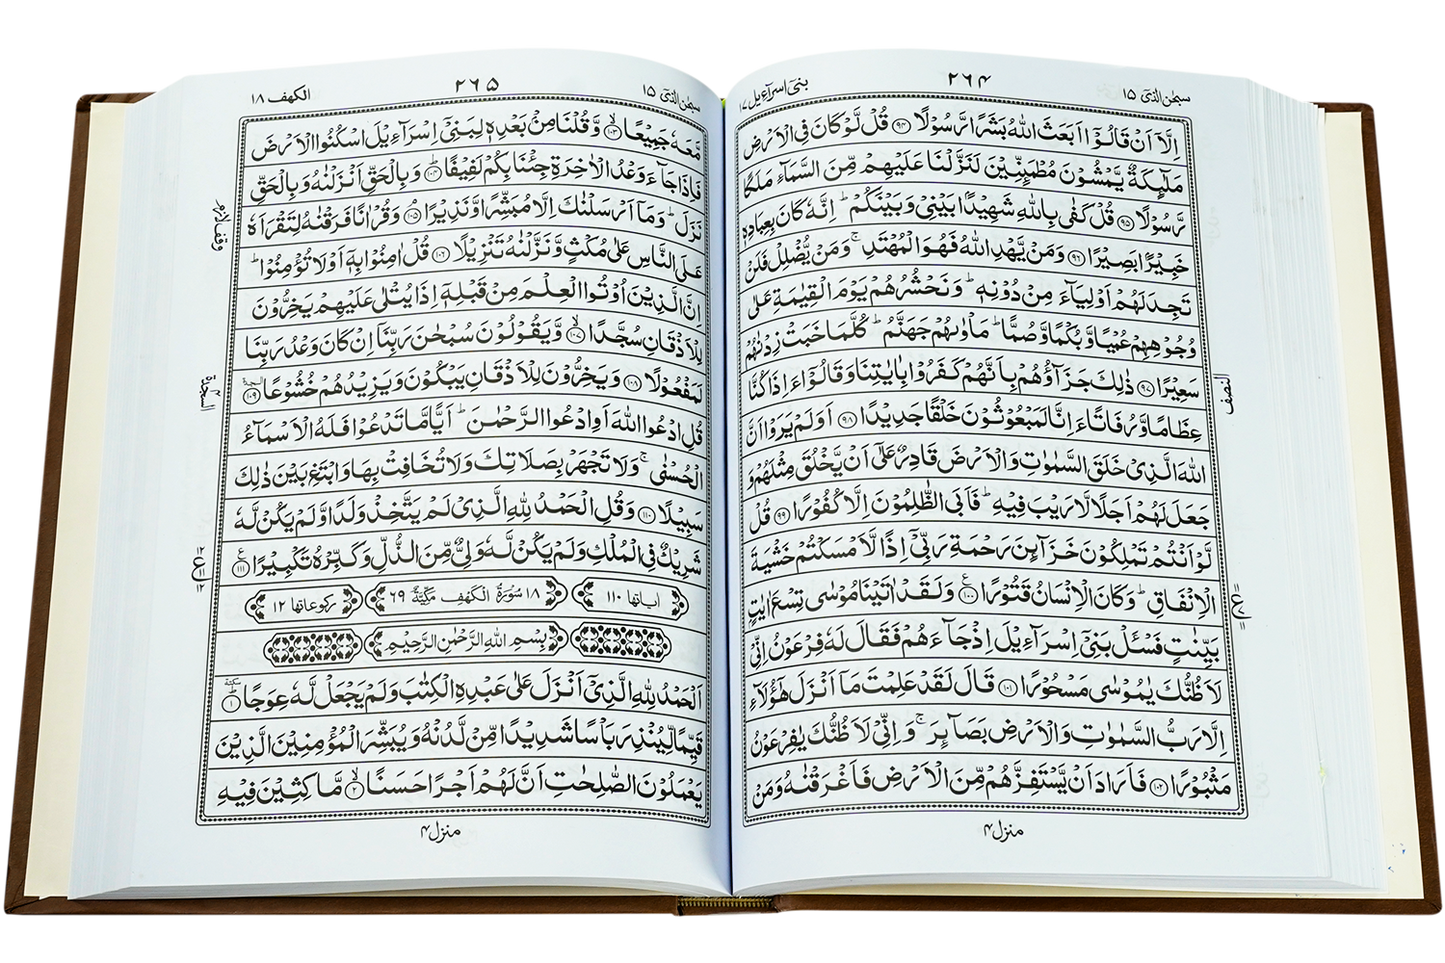 سبحٰن الذی ١٥ ٢٦٤ بنی اسرآءیل ١٧
اِلَّاۤ اَنْ قَالُوْۤا اَبَعَثَ اللّٰهُ بَشَرًا رَّسُوْلًا ﴿٩٤﴾ قُلْ لَّوْ كَانَ فِی الْاَرْضِ
مَلٰٓىِٕكَةٌ یَّمْشُوْنَ مُطْمَىِٕنِّیْنَ لَنَزَّلْنَا عَلَیْهِمْ مِّنَ السَّمَآءِ مَلَكًا
رَّسُوْلًا ﴿٩٥﴾ قُلْ كَفٰی بِاللّٰهِ شَهِیْدًۢا بَیْنِیْ وَبَیْنَكُمْ ؕ اِنَّهٗ كَانَ بِعِبَادِهٖ
خَبِیْرًۢا بَصِیْرًا ﴿٩٦﴾ وَمَنْ یَّهْدِ اللّٰهُ فَهُوَ الْمُهْتَدِ ۚ وَمَنْ یُّضْلِلْ فَلَنْ
تَجِدَ لَهُمْ اَوْلِیَآءَ مِنْ دُوْنِهٖ ؕ وَنَحْشُرُهُمْ یَوْمَ الْقِیٰمَةِ عَلٰی
وُجُوْهِهِمْ عُمْیًا وَّبُكْمًا وَّصُمًّا ؕ مَاْوٰىهُمْ جَهَنَّمُ ؕ كُلَّمَا خَبَتْ زِدْنٰهُمْ
سَعِیْرًا ﴿٩٧﴾ ذٰلِكَ جَزَآؤُهُمْ بِاَنَّهُمْ كَفَرُوْا بِاٰیٰتِنَا وَقَالُوْۤا ءَاِذَا كُنَّا
عِظَامًا وَّرُفَاتًا ءَاِنَّا لَمَبْعُوْثُوْنَ خَلْقًا جَدِیْدًا ﴿٩٨﴾ اَوَلَمْ یَرَوْا اَنَّ
اللّٰهَ الَّذِیْ خَلَقَ السَّمٰوٰتِ وَالْاَرْضَ قَادِرٌ عَلٰۤی اَنْ یَّخْلُقَ مِثْلَهُمْ وَ
جَعَلَ لَهُمْ اَجَلًا لَّا رَیْبَ فِیْهِ ؕ فَاَبَی الظّٰلِمُوْنَ اِلَّا كُفُوْرًا ﴿٩٩﴾ قُلْ
لَّوْ اَنْتُمْ تَمْلِكُوْنَ خَزَآىِٕنَ رَحْمَةِ رَبِّیْۤ اِذًا لَّاَمْسَكْتُمْ خَشْیَةَ
الْاِنْفَاقِ ؕ وَكَانَ الْاِنْسَانُ قَتُوْرًا ﴿١٠٠﴾ وَلَقَدْ اٰتَیْنَا مُوْسٰی تِسْعَ اٰیٰتٍۭ
بَیِّنٰتٍ فَسْـَٔلْ بَنِیْۤ اِسْرَآءِیْلَ اِذْ جَآءَهُمْ فَقَالَ لَهٗ فِرْعَوْنُ اِنِّیْ
لَاَظُنُّكَ یٰمُوْسٰی مَسْحُوْرًا ﴿١٠١﴾ قَالَ لَقَدْ عَلِمْتَ مَاۤ اَنْزَلَ هٰۤؤُلَآءِ
اِلَّا رَبُّ السَّمٰوٰتِ وَالْاَرْضِ بَصَآىِٕرَ ۚ وَاِنِّیْ لَاَظُنُّكَ یٰفِرْعَوْنُ
مَثْبُوْرًا ﴿١٠٢﴾ فَاَرَادَ اَنْ یَّسْتَفِزَّهُمْ مِّنَ الْاَرْضِ فَاَغْرَقْنٰهُ وَمَنْ
النصف
منزل ٤
سبحٰن الذی ١٥ ٢٦٥ الكهف ١٨
مَّعَهٗ جَمِیْعًا ﴿١٠٣﴾ وَّقُلْنَا مِنْۢ بَعْدِهٖ لِبَنِیْۤ اِسْرَآءِیْلَ اسْكُنُوا الْاَرْضَ
فَاِذَا جَآءَ وَعْدُ الْاٰخِرَةِ جِئْنَا بِكُمْ لَفِیْفًا ﴿١٠٤﴾ وَبِالْحَقِّ اَنْزَلْنٰهُ وَبِالْحَقِّ
نَزَلَ ؕ وَمَاۤ اَرْسَلْنٰكَ اِلَّا مُبَشِّرًا وَّنَذِیْرًا ﴿١٠٥﴾ وَقُرْاٰنًا فَرَقْنٰهُ لِتَقْرَاَهٗ
عَلَی النَّاسِ عَلٰی مُكْثٍ وَّنَزَّلْنٰهُ تَنْزِیْلًا ﴿١٠٦﴾ قُلْ اٰمِنُوْا بِهٖۤ اَوْ لَا تُؤْمِنُوْا ؕ
اِنَّ الَّذِیْنَ اُوْتُوا الْعِلْمَ مِنْ قَبْلِهٖۤ اِذَا یُتْلٰی عَلَیْهِمْ یَخِرُّوْنَ
لِلْاَذْقَانِ سُجَّدًا ﴿١٠٧﴾ وَّیَقُوْلُوْنَ سُبْحٰنَ رَبِّنَاۤ اِنْ كَانَ وَعْدُ رَبِّنَا
لَمَفْعُوْلًا ﴿١٠٨﴾ وَیَخِرُّوْنَ لِلْاَذْقَانِ یَبْكُوْنَ وَیَزِیْدُهُمْ خُشُوْعًا ﴿١٠٩﴾
قُلِ ادْعُوا اللّٰهَ اَوِ ادْعُوا الرَّحْمٰنَ ؕ اَیًّا مَّا تَدْعُوْا فَلَهُ الْاَسْمَآءُ
الْحُسْنٰی ۚ وَلَا تَجْهَرْ بِصَلَاتِكَ وَلَا تُخَافِتْ بِهَا وَابْتَغِ بَیْنَ ذٰلِكَ
سَبِیْلًا ﴿١١٠﴾ وَقُلِ الْحَمْدُ لِلّٰهِ الَّذِیْ لَمْ یَتَّخِذْ وَلَدًا وَّلَمْ یَكُنْ لَّهٗ
شَرِیْكٌ فِی الْمُلْكِ وَلَمْ یَكُنْ لَّهٗ وَلِیٌّ مِّنَ الذُّلِّ وَكَبِّرْهُ تَكْبِیْرًا ﴿١١١﴾
اٰیاتها ١١٠ ١٨ سُوْرَةُ الْكَهْفِ مَكِّیَّةٌ ٦٩ ركوعاتها ١٢
بِسْمِ اللّٰهِ الرَّحْمٰنِ الرَّحِیْمِ
اَلْحَمْدُ لِلّٰهِ الَّذِیْۤ اَنْزَلَ عَلٰی عَبْدِهِ الْكِتٰبَ وَلَمْ یَجْعَلْ لَّهٗ عِوَجًا ﴿١﴾
قَیِّمًا لِّیُنْذِرَ بَاْسًا شَدِیْدًا مِّنْ لَّدُنْهُ وَیُبَشِّرَ الْمُؤْمِنِیْنَ الَّذِیْنَ
یَعْمَلُوْنَ الصّٰلِحٰتِ اَنَّ لَهُمْ اَجْرًا حَسَنًا ﴿٢﴾ مَّاكِثِیْنَ فِیْهِ
وقف لازم
السجدة
منزل ٤